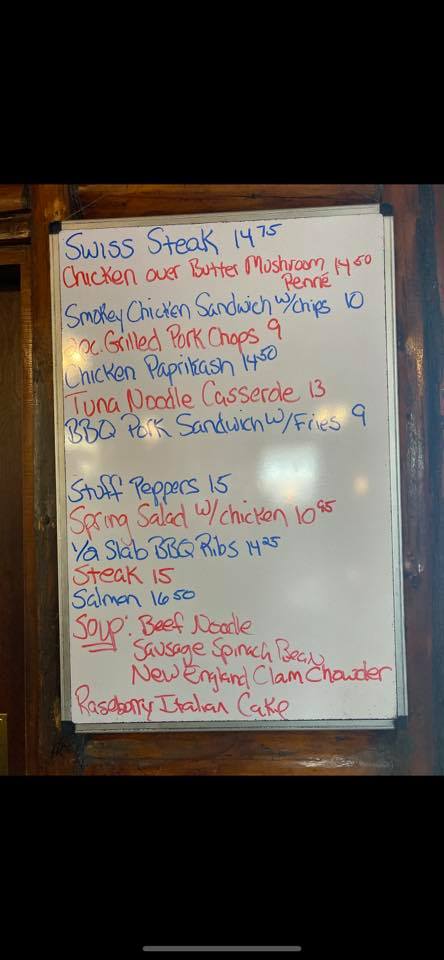 Swiss Steak 14 75
Chicken over Butter Mushroom 14 50
Penne
Smokey Chicken Sandwich w/chips 10
2pc. Grilled Pork Chops 9
Chicken Paprikash 14 50
Tuna Noodle Casserole 13
BBQ Pork Sandwich w/Fries 9
Stuff Peppers 15
Spring Salad w/chicken 10 95
1/2 Slab BBQ Ribs 14 25
Steak 15
Salmon 16 50
Soup: Beef Noodle
Sausage Spinach Bean
New England Clam Chowder
Raspberry Italian Cake